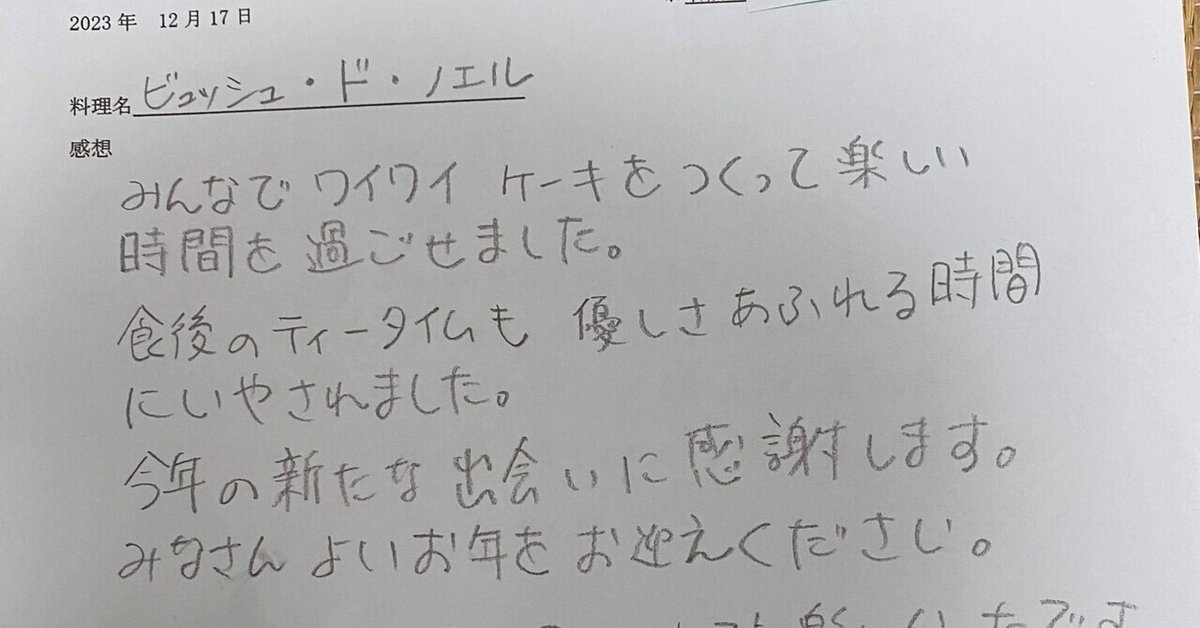 2023年 12月17日
料理名 ビュッシュ・ド・ノエル
感想
みんなで ワイワイ ケーキをつくって楽しい
時間を過ごせました。
食後のティータイムも 優しさあふれる時間
にいやされました。
今年の新たな出会いに感謝します。
みなさん よいお年を お迎えください。